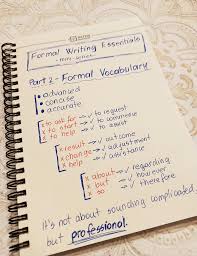 Formal Writing Essentials
- mini-series -
Part 2 - Formal Vocabulary
• advanced
• concise
• accurate
x to ask for → ✓ to request
x to start → ✓ to commence
x to help → ✓ to assist
x result → ✓ outcome
x change → ✓ adjustment
x help → ✓ assistance
x about → ✓ regarding
x but → ✓ however
x so → ✓ therefore
It's not about sounding complicated,
but professional.